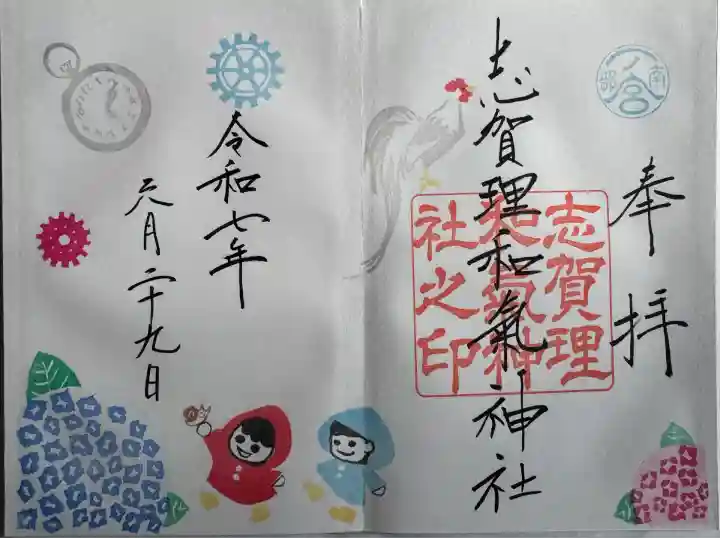 奉拝
南部一ノ宮
志賀理和氣神社
志賀理
和氣神
社之印
令和七年
六月二十九日